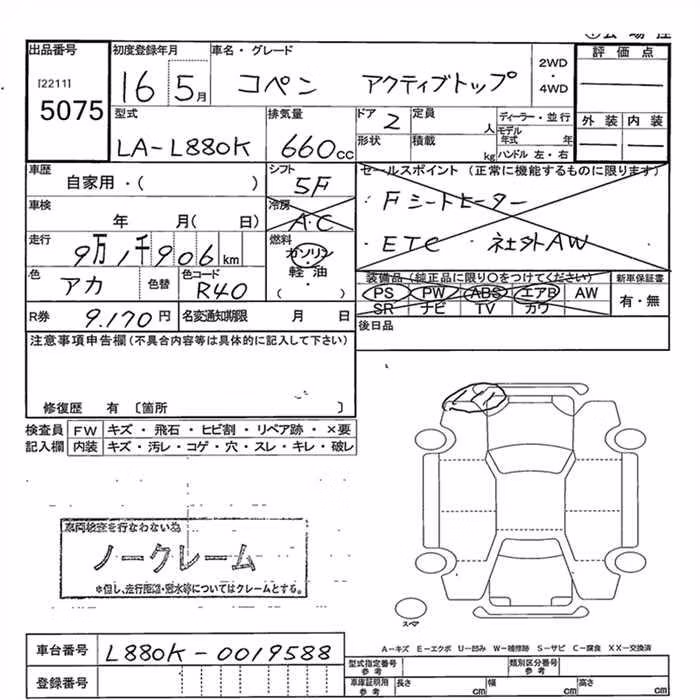 出品番号 初度登録年月 車名・グレード 2WD・4WD 評価点
[2211]
5075
16 5月 コペン アクティブトップ
型式 排気量 ドア 定員 人 ディーラー・並行 外装 内装
LA-L880K 660cc 2
形状 積載 kg モデル年式 年 ハンドル 左・右
車歴 シフト セールスポイント (正常に機能するものに限ります)
自家用・( ) 5F
・Fシートヒーター
車検 年 月( 日) 冷房 A・C
・ETC ・社外AW
走行 9万1千906km 燃料 ガソリン
軽油
・( )
装備品(純正品に限り○をつけてください) 新車保証書
色 アカ 色替 色コード R40
PS PW ABS エアB AW 有・無
SR ナビ TV カワ
R券 9.170円 名変通知期限 月 日
後日品
注意事項申告欄(不具合内容等は具体的に記入して下さい)
修復歴 有 〔箇所 〕
検査員 FW キズ・飛石・ヒビ割・リペア跡・×要
記入欄 内装 キズ・汚レ・コゲ・穴・スレ・キレ・破レ
車両検査を行なわない為
ノークレーム
※但し、走行距離・冠水等についてはクレームとする。
スペア
A-キズ E-エクボ U-凹み W-補修跡 S-サビ C-腐食 XX-交換済
車台番号 L880K-0019588
登録番号
型式指定番号 参考 類別区分番号 参考
車庫証明用 参考 長さ cm 幅 cm 高さ cm